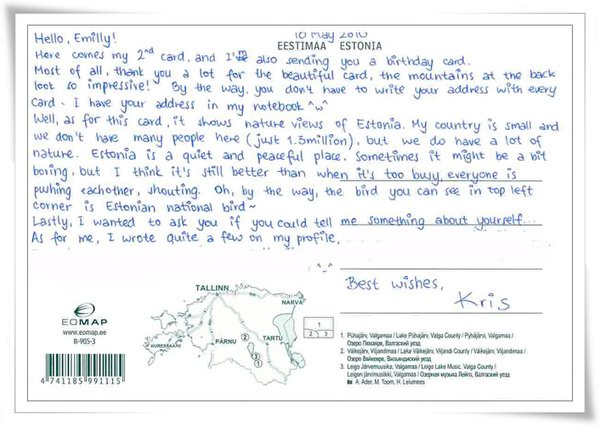 Hello, Emilly!
10 May 2010
EESTIMAA ESTONIA
Here comes my 2nd card, and I'm also sending you a birthday card.
Most of all, thank you a lot for the beautiful card, the mountains at the back
look so impressive! By the way, you don't have to write your address with every
card - I have your address in my notebook ^w^
Well, as for this card, it shows nature views of Estonia. My country is small and
we don't have many people here (just 1.3million), but we do have a lot of
nature. Estonia is a quiet and peaceful place. Sometimes it might be a bit
boring, but I think it's still better than when it's too busy, everyone is
pushing eachother, shouting. Oh, by the way, the bird you can see in top left
corner is Estonian national bird~
Lastly, I wanted to ask you if you could tell me something about yourself...
As for me, I wrote quite a few on my profile,
^-^
Best wishes,
Kris
EOMAP
www.eomap.ee
B-905-3
4 741185 991115
TALLINN
NARVA
KURESSAARE
PÄRNU
TARTU
2
3
1
1
2 3
1 Pühajärv, Valgamaa / Lake Pühajärv, Valga County / Pyhäjärvi, Valgamaa /
Озеро Пюхаярв, Валгаский уезд
2 Väikejärv, Viljandimaa / Lake Väikejärv, Viljandi County / Väikejärvi, Viljandimaa /
Озеро Вяйкеярв, Вильяндиский уезд
3 Leigo Järvemuusika, Valgamaa / Leigo Lake Music, Valga County /
Leigon järvimusiikki, Valgamaa / Озерная музыка Лейго, Валгаский уезд
A. Ader, M. Toom, H. Leiumees